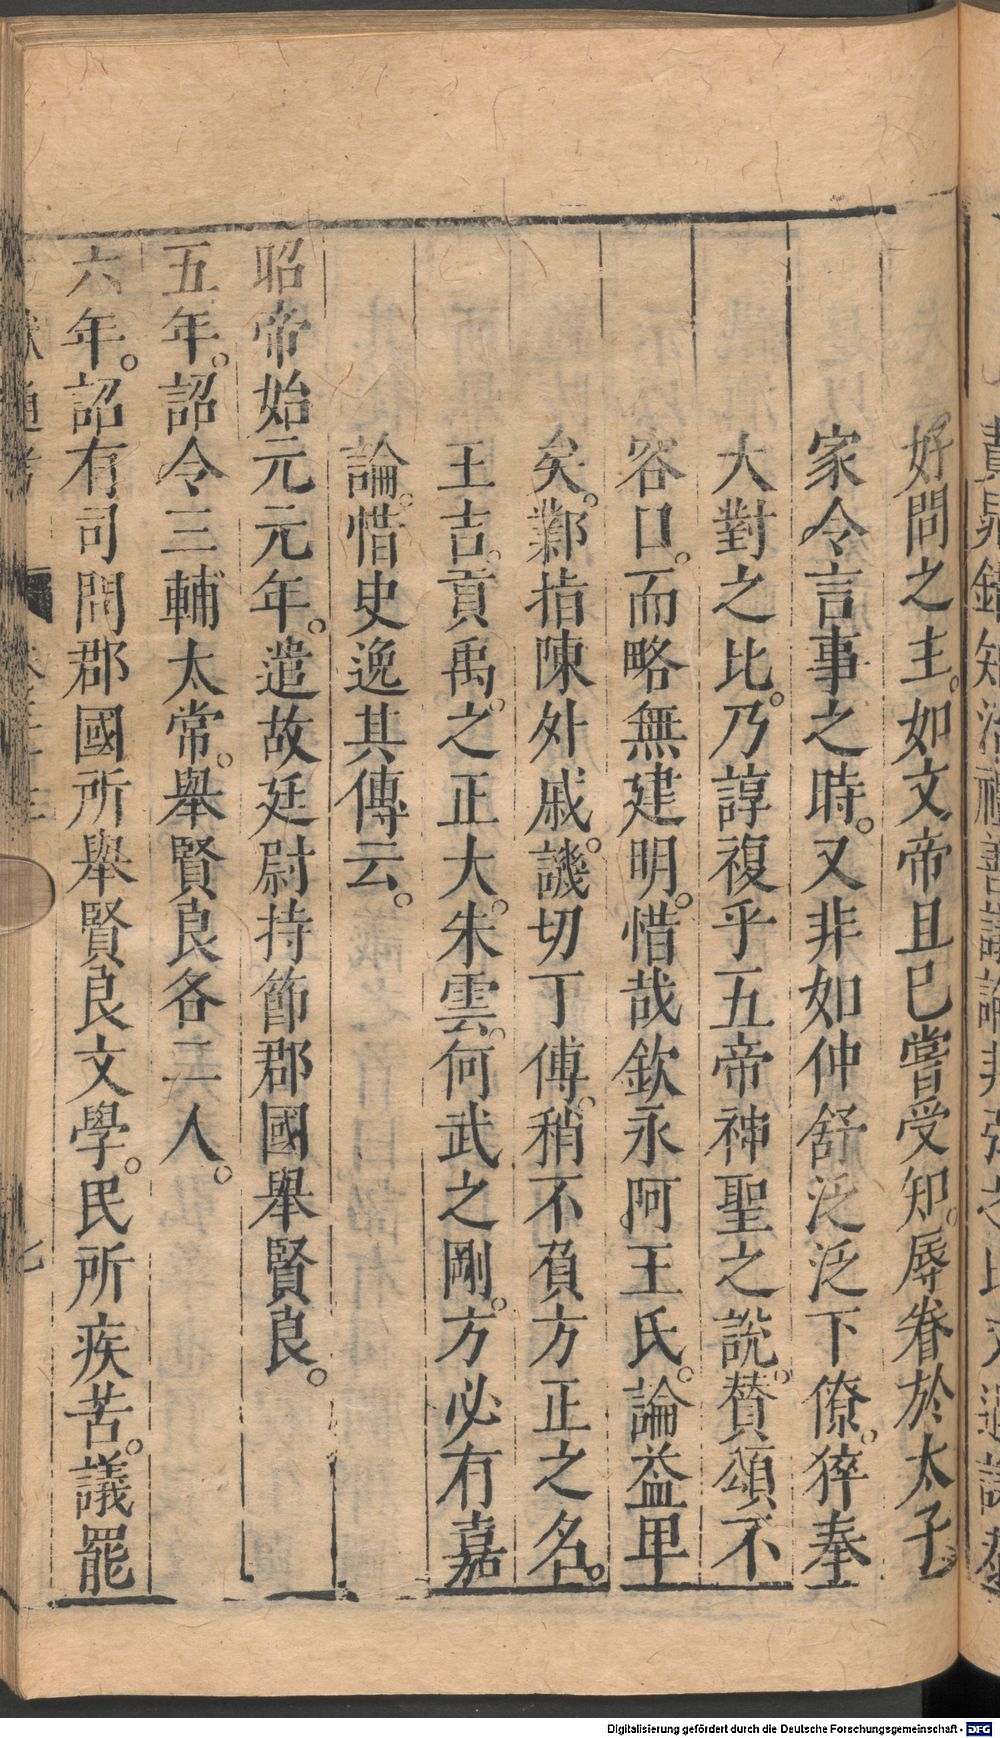 好問之主。如文帝且已嘗受知。辱眷於太子
家令言事之時。又非如仲舒泛泛下僚。猝奉
大對之比。乃諄複乎五帝神聖之說。賛頌不
容口。而略無建明。惜哉欽永阿王氏。論益卑
矣。鄴指陳外戚。譏切丁傅。稍不負方正之名。
王吉。貢禹。之正大。朱雲。何武之剛。方必有嘉
論。惜史逸其傳云。
昭帝始元元年。遣故廷尉持節郡國舉賢良。
五年。詔令三輔太常。舉賢良各二人。
六年。詔有司問郡國所舉賢良文學。民所疾苦。議罷
Digitalisierung gefördert durch die Deutsche Forschungsgemeinschaft - DFG